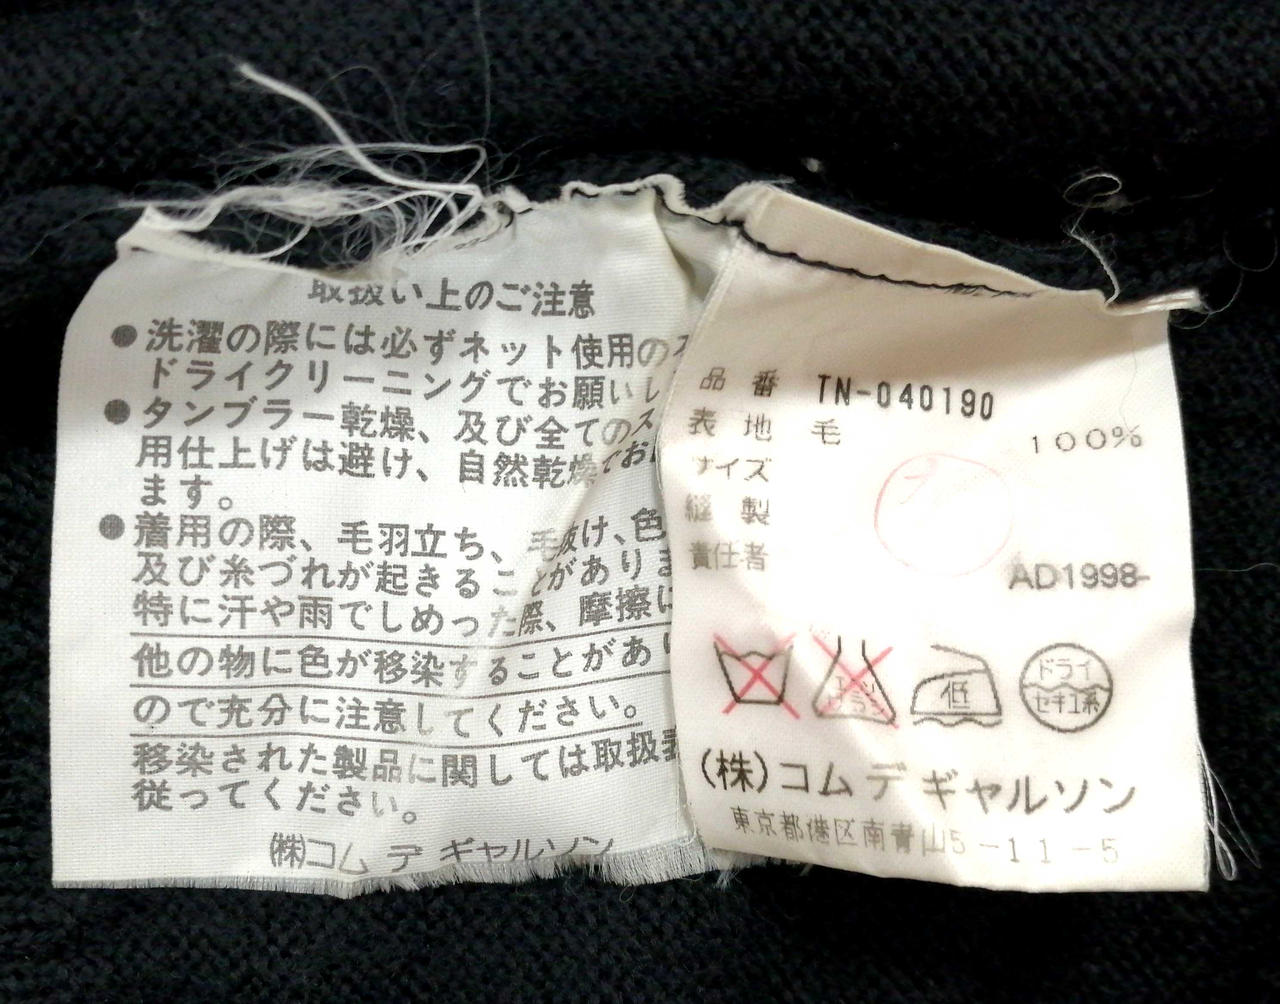 取扱い上のご注意
●洗濯の際には必ずネット使用の
ドライクリーニングでお願いし
●タンブラー乾燥、及び全てのス
用仕上げは避け、自然乾燥でお
ます。
●着用の際、毛羽立ち、毛抜け、色
及び糸づれが起きることがありま
特に汗や雨でしめった際、摩擦に
他の物に色が移染することがあり
ので充分に注意してください。
移染された製品に関しては取扱
従ってください。
(株)コム デ ギャルソン
品番 TN-040190
表地 毛 100%
サイズ
縫製
責任者
AD1998-
エンソ
サラシ
低
ドライ
セキユ系
(株)コム デ ギャルソン
東京都港区南青山5-11-5